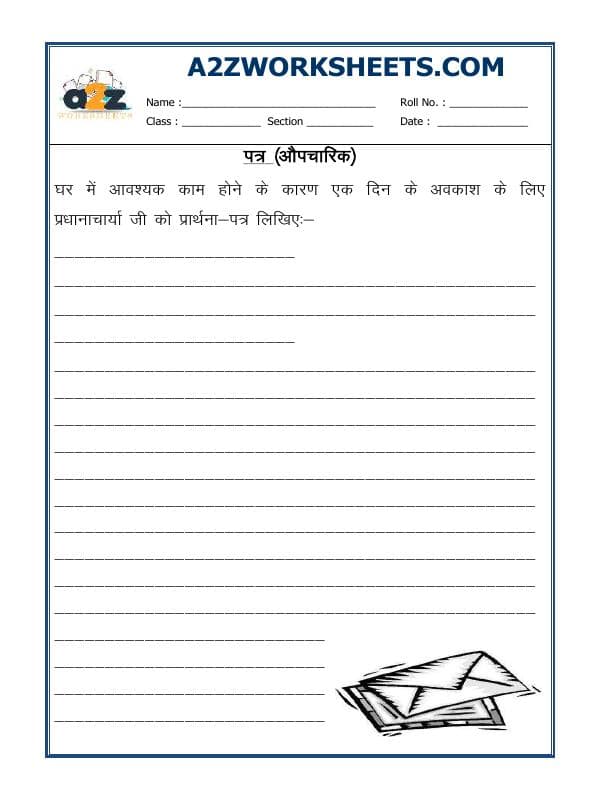 A2ZWORKSHEETS.COM
a2z
WORKSHEETS
Name :______________________________ Roll No. : ____________
Class : ____________ Section __________ Date : ______________
पत्र (औपचारिक)
घर में आवश्यक काम होने के कारण एक दिन के अवकाश के लिए
प्रधानाचार्या जी को प्रार्थना–पत्र लिखिए:–